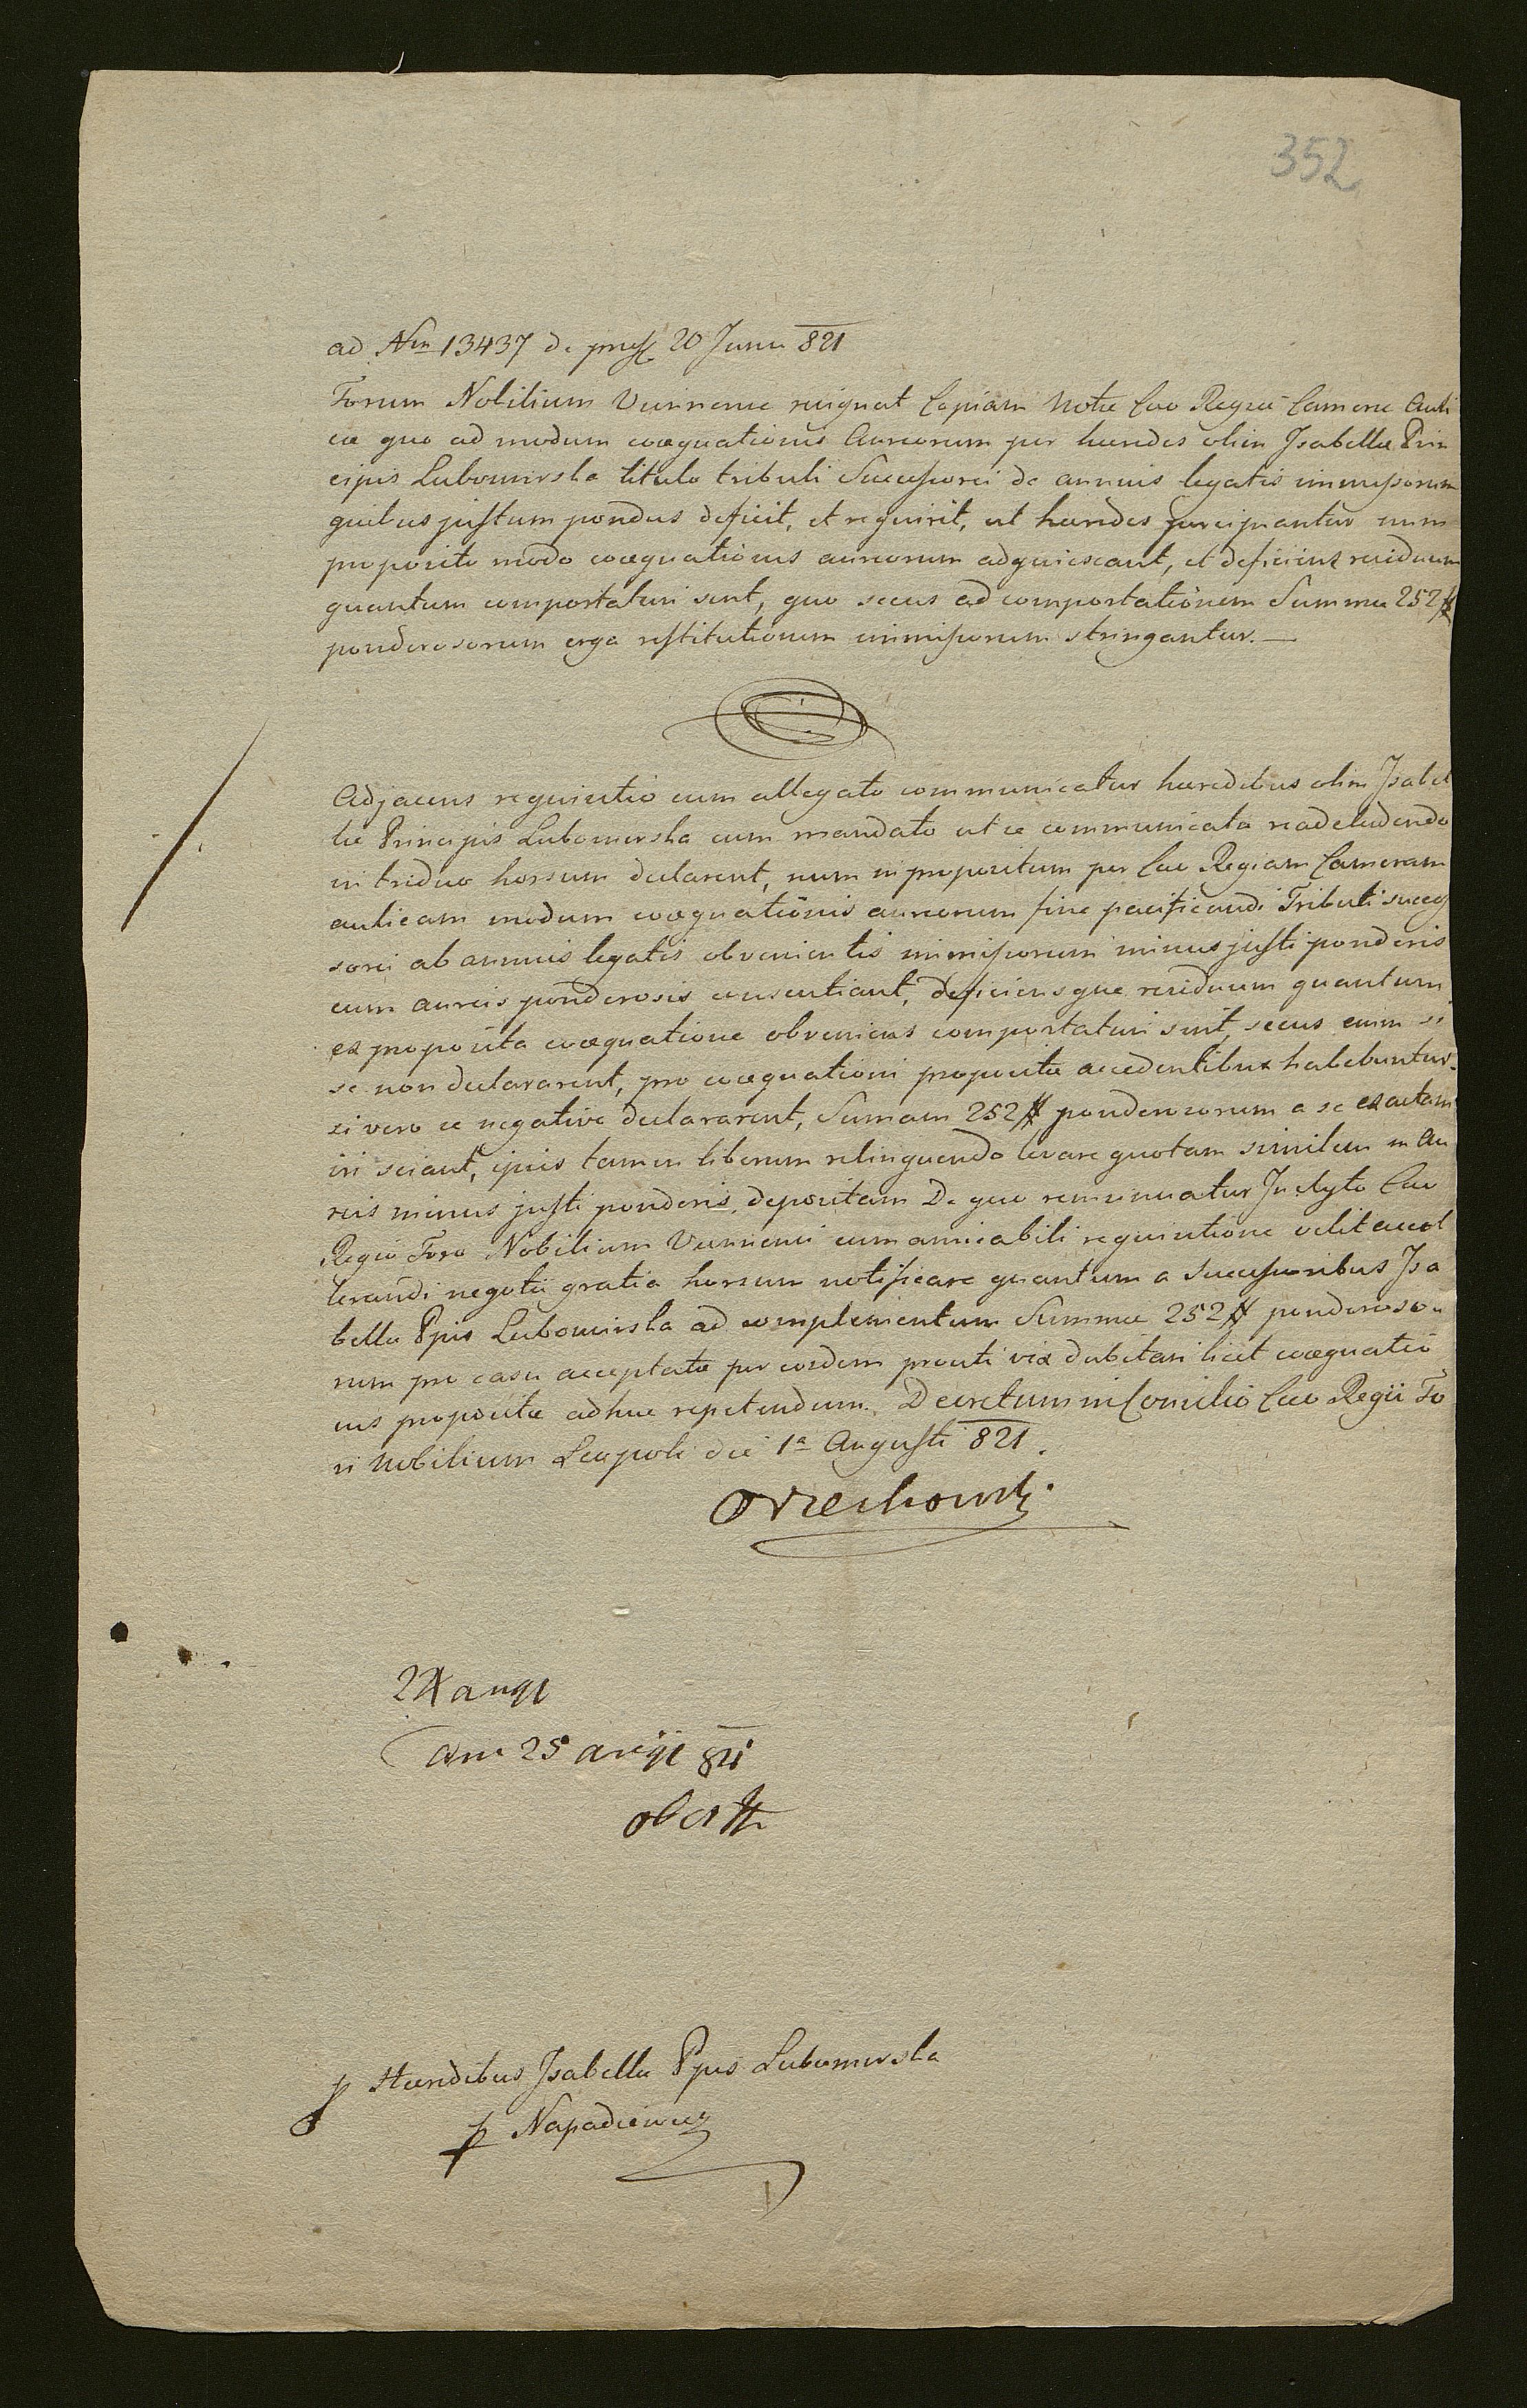 352
ad Nrm 13437 de præs 20 Junii 821
Forum Nobilium Viennense resignat Copiam Notæ Cæo Regiæ Cameræ Auli
cæ quo ad modum coæquationis Aureorum per hæredes olim Isabellæ Prin
cipis Lubomirska titulo tributi Successorei de annuis legatis immissorum
quibus justum pondus deficit, et requirit, ut hæredes percipiantur num
proposito modo coæquationis aureorum adquiescant, et deficiens residuum
quantum comportaturi sint, quo secus ad comportationem Summæ 252 #
ponderosorum erga restitutionem immissorum stringantur. —
Adjacens requisitio cum allegato communicatur hæredibus olim Isabel
læ Principis Lubomirska cum mandato ut se communicata reacludendo
in triduo horsum declarent, num in propositum per Cæo Regiam Cameram
aulicam modum coæquationis aureorum fine pacificandi Tributi succes
sorei ab annuis legatis obvenientis immissorum minus justi ponderis
cum aureis ponderosis consentiant, deficiensque residuum quantum
ex proposita coæquatione obveniens comportaturi sint, secus enim si
se non declararent, pro coæquationi propositæ accedentibus habebuntur
si vero se negative declararent, Sumam 252 # ponderosorum a se exactam
iri sciant, ipsis tamen liberum relinquendo levare quotam similem in Au
reis minus justi ponderis depositam De quo remissinuatur Inclyto Cæo
Regio Foro Nobilium Viennensi cum amicabili requisitione velit accel
lerandi negotii gratia horsum notificare quantum a Successoribus Isa
bellæ Ppis Lubomirska ad complementum Summæ 252 # ponderoso
rum pro casu acceptatæ per eosdem prouti vix dubitari licet coæquatio
nis propositæ adhuc repetendum. Decretum in Consilio Cæo Regii Fo
ri Nobilium Leopoli die 1a Augusti 821.
Orzechowski
24 augt
am 25 augt 821
p Hæredibus Isabellæ Ppis Lubomirska
p Napadiewicz